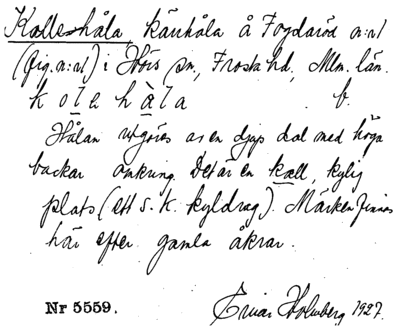 Kalleshåla, kärrhåla å Fogdaröd n:r 1
(fig. n:r 1) i Hörs sn, Frosta hd, Mlm. län.
kolahàla f.
Hålan utgöres av en djup dal med höga
backar omkring. Det är en kall, kylig
plats (ett s.k. kyldrag). Märken finnas
här efter gamla åkrar.
Nr 5559. Einar Holmberg 1927.